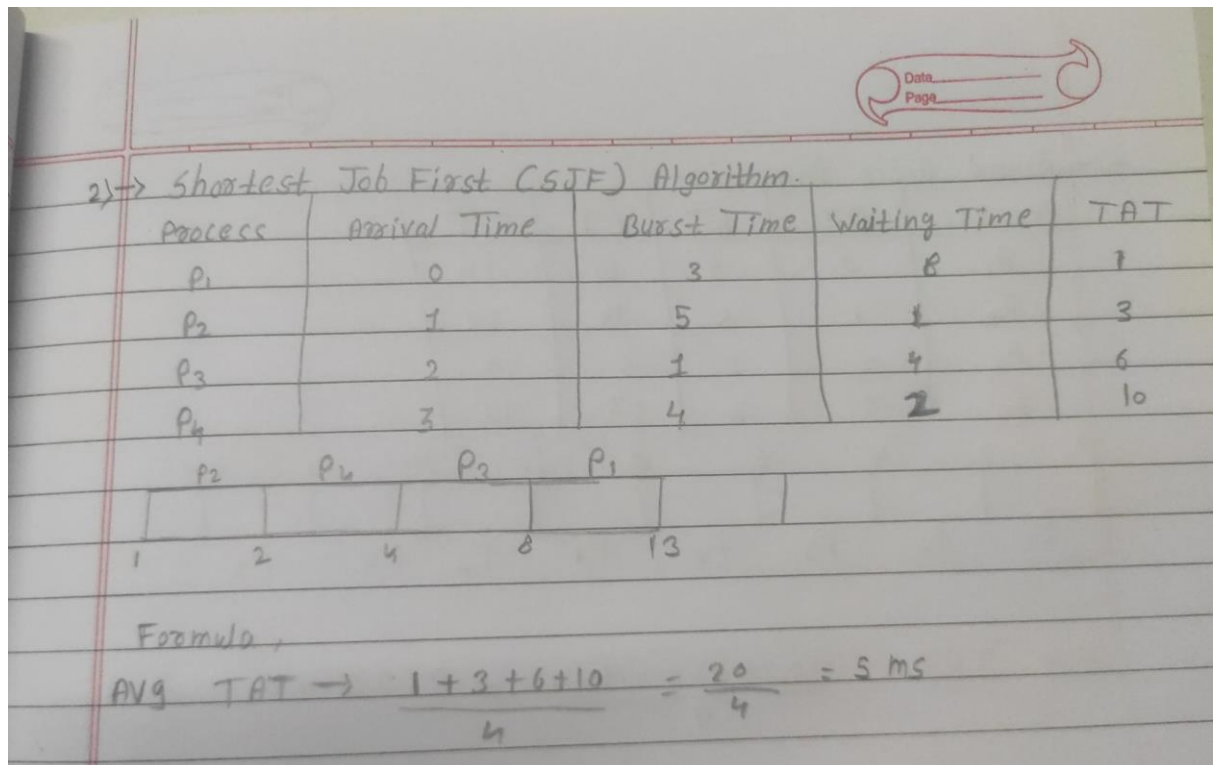 Date
Page
2) → Shortest Job First (SJF) Algorithm.
Process Arrival Time Burst Time Waiting Time TAT
P1 0 3 8 1
P2 1 5 1 3
P3 2 1 4 6
P4 3 4 2 10
P2 P4 P3 P1
1 2 4 8 13
Formula,
AVg TAT → 1+3+6+10 = 20 = 5 ms
4 4